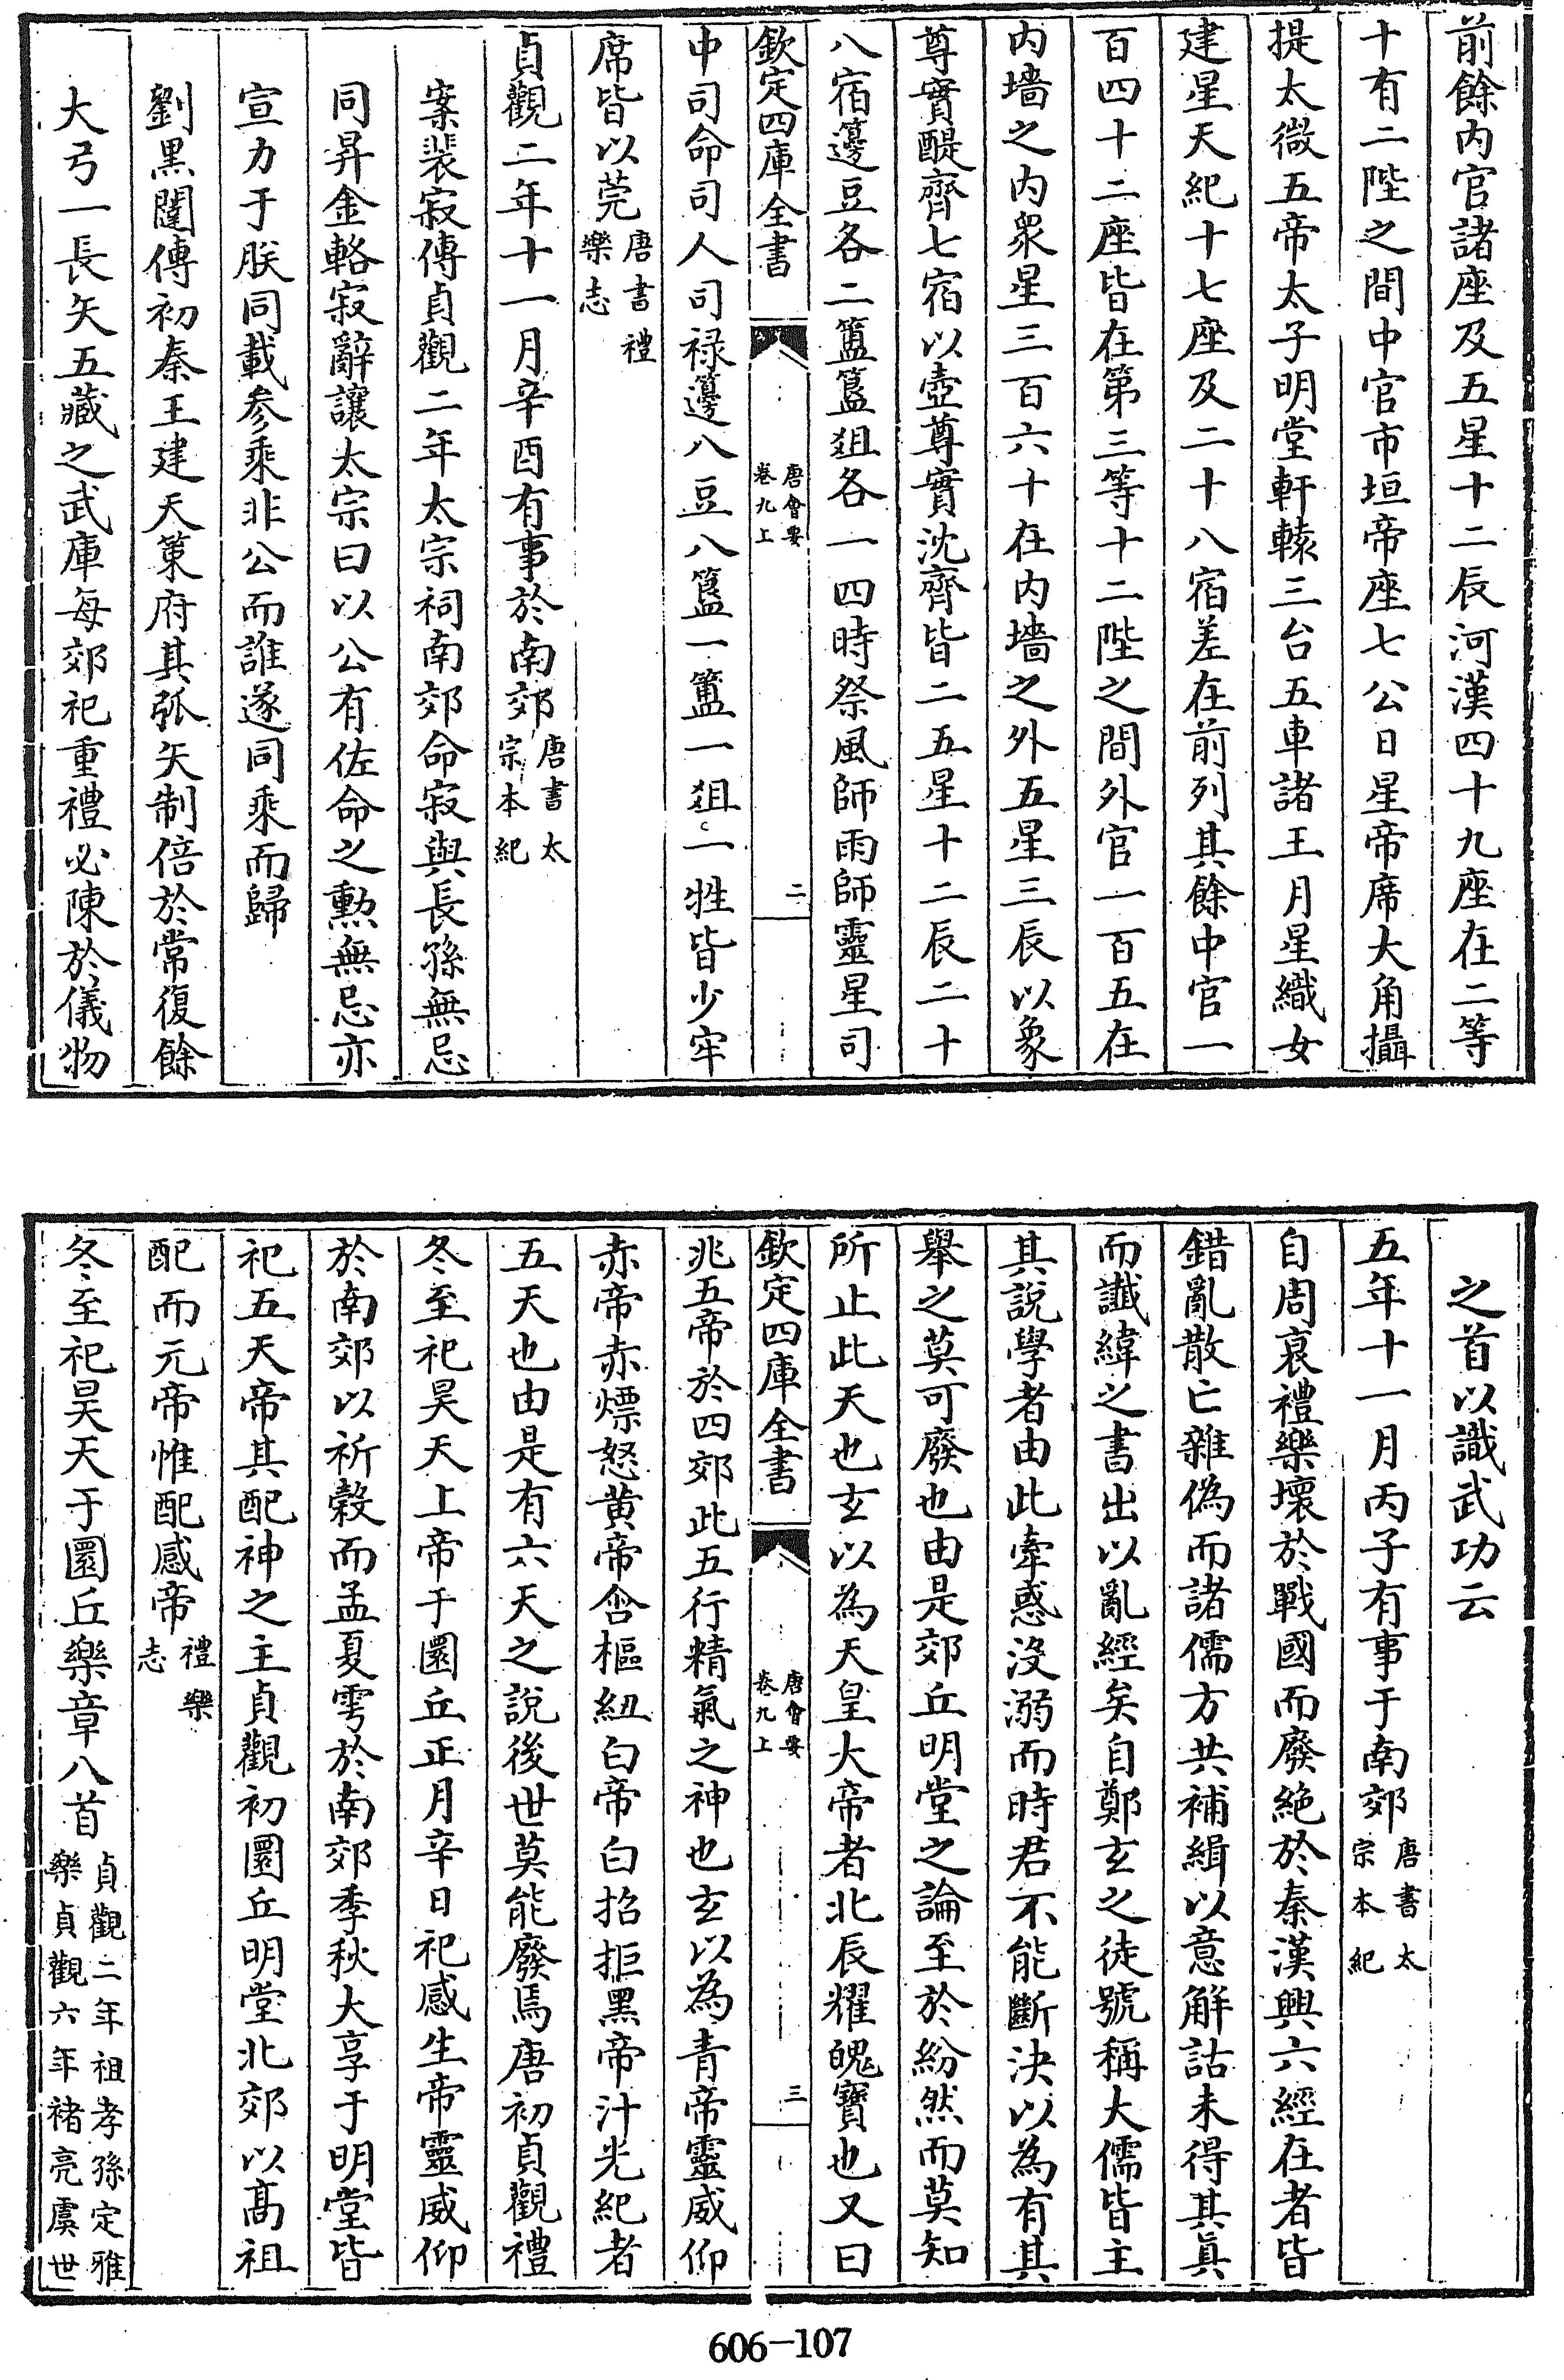 前餘内官諸座及五星十二辰河漢四十九座在二等
十有二陛之間中官市垣帝座七公日星帝席大角攝
提太微五帝太子明堂軒轅三台五車諸王月星織女
建星天紀十七座及二十八宿差在前列其餘中官一
百四十二座皆在第三等十二陛之間外官一百五在
内墻之内衆星三百六十在内墻之外五星三辰以象
尊實醍齊七宿以壺尊實沈齊皆二五星十二辰二十
八宿籩豆各二簠簋俎各一四時祭風師雨師靈星司
欽定四庫全書
唐會要
卷九上
二
中司命司人司禄籩八豆八簋一簠一俎一牲皆少牢
席皆以莞唐書禮
樂志
貞觀二年十一月辛酉有事於南郊唐書太
宗本紀
案裴寂傳貞觀二年太宗祠南郊命寂與長孫無忌
同昇金輅寂辭讓太宗曰以公有佐命之勲無忌亦
宣力于朕同載参乘非公而誰遂同乘而歸
劉黒闥傳初秦王建天策府其弧矢制倍於常復餘
大弓一長矢五藏之武庫每郊祀重禮必陳於儀物
之首以識武功云
五年十一月丙子有事于南郊唐書太
宗本紀
自周衰禮樂壞於戰國而廢絶於秦漢興六經在者皆
錯亂散亡雜偽而諸儒方共補緝以意解詁未得其真
而讖緯之書出以亂經矣自鄭玄之徒號稱大儒皆主
其說學者由此牽惑沒溺而時君不能斷決以為有其
舉之莫可廢也由是郊丘明堂之論至於紛然而莫知
所止此天也玄以為天皇大帝者北辰耀魄寶也又曰
欽定四庫全書
唐會要
卷九上
三
兆五帝於四郊此五行精氣之神也玄以為青帝靈威仰
赤帝赤熛怒黄帝含樞紐白帝白招拒黑帝汁光紀者
五天也由是有六天之說後世莫能廢焉唐初貞觀禮
冬至祀昊天上帝于圜丘正月辛日祀感生帝靈威仰
於南郊以祈榖而孟夏雩於南郊季秋大享于明堂皆
祀五天帝其配神之主貞觀初圜丘明堂北郊以髙祖
配而元帝惟配感帝禮樂
志
冬至祀昊天于圜丘樂章八首貞觀二年祖孝孫定雅
樂貞觀六年褚亮虞世
606-107